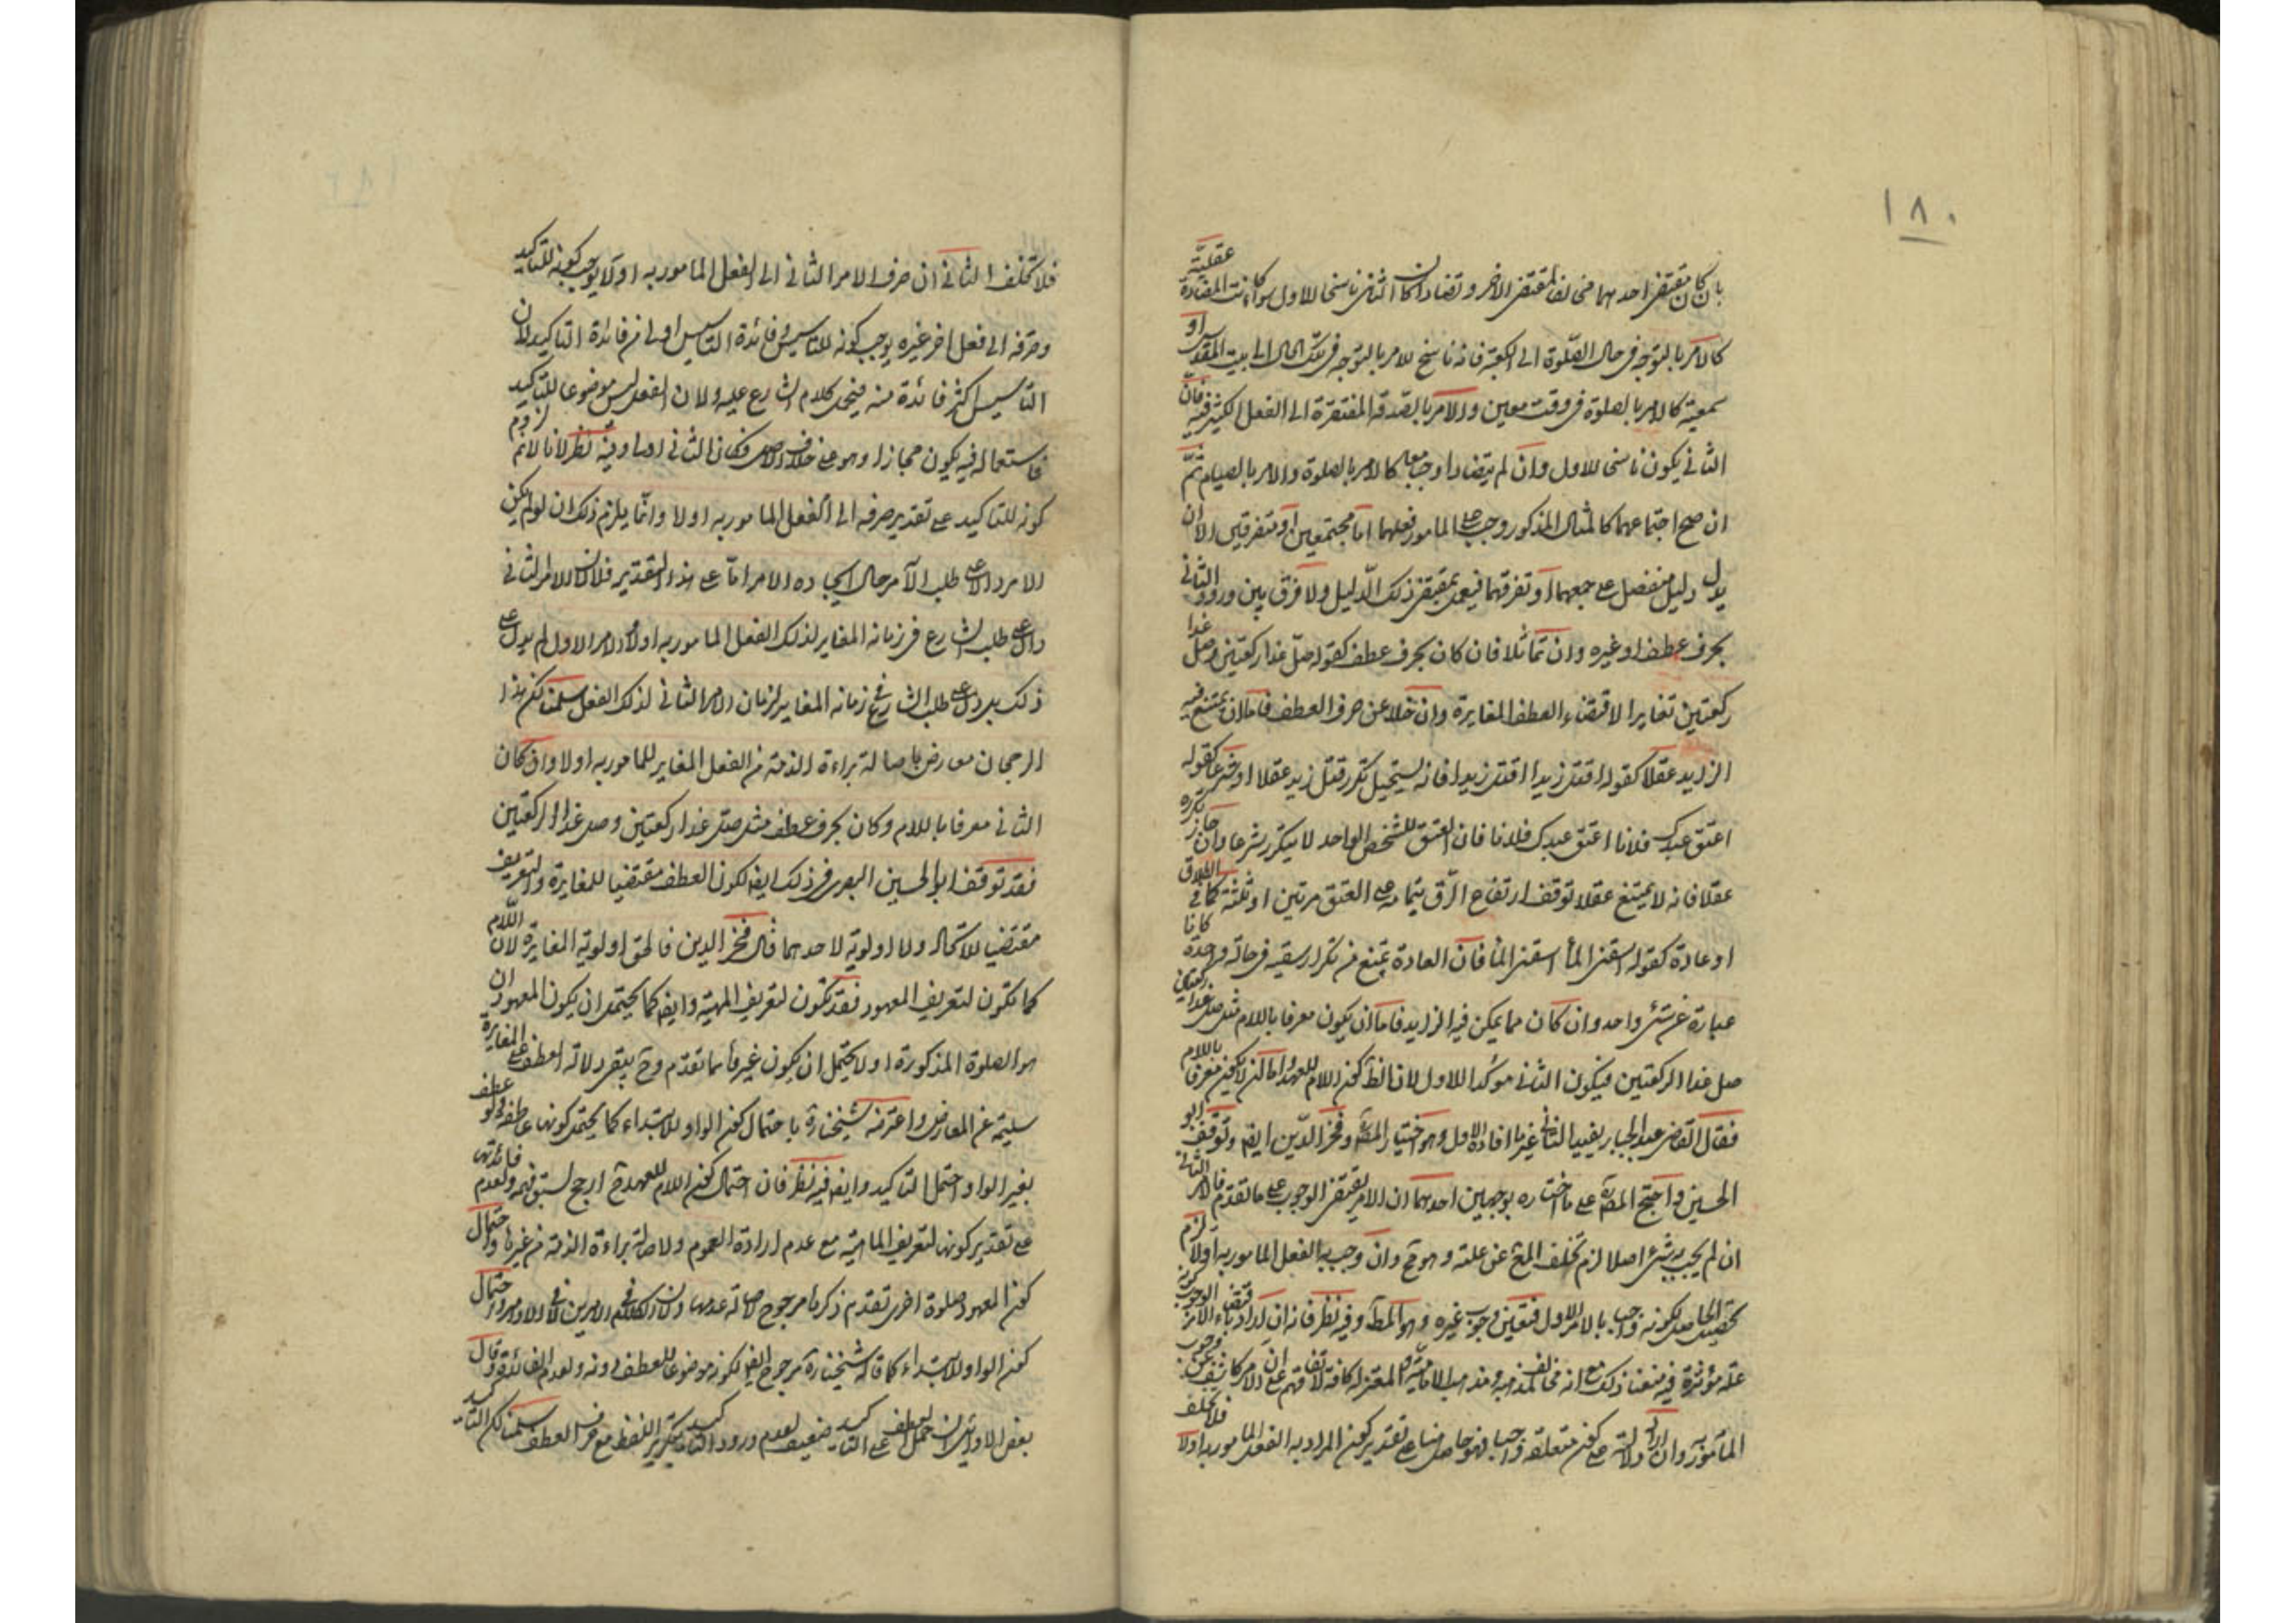 ١٨٠
بان كان مقتضى احدهما مخالفا لمقتضى الاخر وتضادا كان الثانى ناسخا للاول سواء كانت المضادة عقلية
كالامر بالتوجه فى حال الصلوة الى الكعبة فانه ناسخ للامر بالتوجه فى تلك الحال الى بيت المقدس او
سمعية كالامر بالصلوة فى وقت معين والامر بالصدقة المفتقرة الى الفعل الكثير فيه فان
الثانى يكون ناسخا للاول وان لم يتضادا وجبا معا كالامر بالصلوة والامر بالصيام ثم
ان صح اجتماعهما كالمثال المذكور وجب على المامور فعلهما اما مجتمعين او متفرقين الا ان
يدل دليل منفصل على جمعهما او تفرقهما فيعمل بمقتضى ذلك الدليل ولا فرق بين ورود الثانى
بحرف عطف او غيره وان تماثلا فان كان بحرف عطف كقوله صل غدا ركعتين وصل غدا
ركعتين تغايرا لاقتضاء العطف المغايرة وان خلا عن حرف العطف فاما ان يمتنع فيه
الزايد عقلا كقوله اقتل زيدا اقتل زيدا فانه يستحيل تكرر قتل زيد عقلا او شرعا كقوله
اعتق عبدك فلانا اعتق عبدك فلانا فان العتق للشخص الواحد لا يتكرر شرعا وان جاز تكرره
عقلا فانه لا يمتنع عقلا توقف ارتفاع الرق بتمامه على العتق مرتين او ثلثة كما فى الطلاق
او عادة كقوله اسقنى الماء اسقنى الماء فان العادة تمنع من تكرار سقيه فى حالة واحدة كانا
عبارة عن شئ واحد وان كان مما يمكن فيه الزايد فاما ان يكون معرفا باللام مثل صل غدا ركعتين
صل غدا الركعتين فيكون الثانى مؤكدا للاول لان الظ كون اللام للعهد واما ان لا يكون معرفا باللام
فقال القاضى عبد الجبار يفيد الثانى غير ما افاده الاول وهو اختيار المص وفخر الدين ايض وتوقف ابو
الحسين واحتج المص على ما اختاره بوجهين احدهما ان الامر يقتضى الوجوب على ما تقدم فالامر الثانى
ان لم يجب به شئ اصلا لزم تخلف المع عن علته وهو مح وان وجب به الفعل المامور به اولا لزم
تحصيل الحاصل لكونه وجب بالامر الاول فتعين وجوب غيره وهو المط وفيه نظر فانه ان اراد
علة مؤثرة فيه منعنا ذلك مع انه مخالف لمذهبه ومذهب الامامية والمعتزلة كافة
المامور به وان اراد دلالته على كون متعلقه واجبا فهو حاصل هنا على تقدير كون المراد به الفعل المامور به اولا فلا تخلف
فلا تخلف الثانى ان صرف الامر الثانى الى الفعل المامور به اولا يوجب كونه للتاكيد
وصرفه الى فعل اخر غيره يوجب كونه للتاسيس وفائدة التاسيس اولى من فائدة التاكيد لان
التاسيس اكثر فائدة منه فيحمل كلام الشارع عليه ولان الفعل ليس موضوعا للتاكيد
فاستعماله فيه يكون مجازا وهو على خلاف الاصل فكان الثانى اولى وفيه نظر لانا لانم لزوم
كونه للتاكيد على تقدير صرفه الى الفعل المامور به اولا وانما يلزم ذلك ان لو لم يكن
الامر دالا على طلب الآمر حال ايجاده الامر اما على هذا التقدير فلا لان الامر الثانى
دال على طلب الشارع فى زمانه المغاير لذلك الفعل المامور به اولا والامر الاول لم يدل على
ذلك بل دل على طلب الشارع فى زمانه المغاير لزمان الامر الثانى لذلك الفعل سلمنا لكن هذا
الرجحان معارض باصالة براءة الذمة من الفعل المغاير للمامور به اولا وان كان
الثانى معرفا باللام وكان بحرف عطف مثل صل غدا ركعتين وصل غدا الركعتين
فقد توقف ابو الحسين البصرى فى ذلك ايض لكون العطف مقتضيا للمغايرة والتعريف
مقتضيا للاتحاد ولا اولوية لاحدهما قال فخر الدين فالحق اولوية المغايرة لان اللام
كما تكون لتعريف المعهود فقد تكون لتعريف المهية وايض كما يحتمل ان يكون المعهود
هو الصلوة المذكورة اولا يحتمل ان يكون غيرها مما تقدم وح يبقى دلالة العطف على المغايرة
سليمة عن المعارض واعترضه شيخنا ره باحتمال كون الواو للابتداء كما يحتمل كونها عاطفة ولو عطف
بغير الواو احتمل التاكيد وايض فيه نظر فان احتمال كون اللام للعهد ح ارجح لسبق فهمه ولعدم فائدتها
على تقدير كونها لتعريف الماهية مع عدم ارادة العموم ولاصالة براءة الذمة من غيرها واحتمال
كون المعهود صلوة اخرى تقدم ذكرها مرجوح لاصالة عدمها واحتمال
كون الواو للابتداء كما قاله شيخنا ره مرجوح ايض لكونه موضوعا للعطف دونه ولعدم الفائدة وقال
بعض الاوايل ان حمل العطف على التاكيد ضعيف لعدم ورود التاكيد بتكرير اللفظ مع حرف العطف سلمنا لكن التاكيد